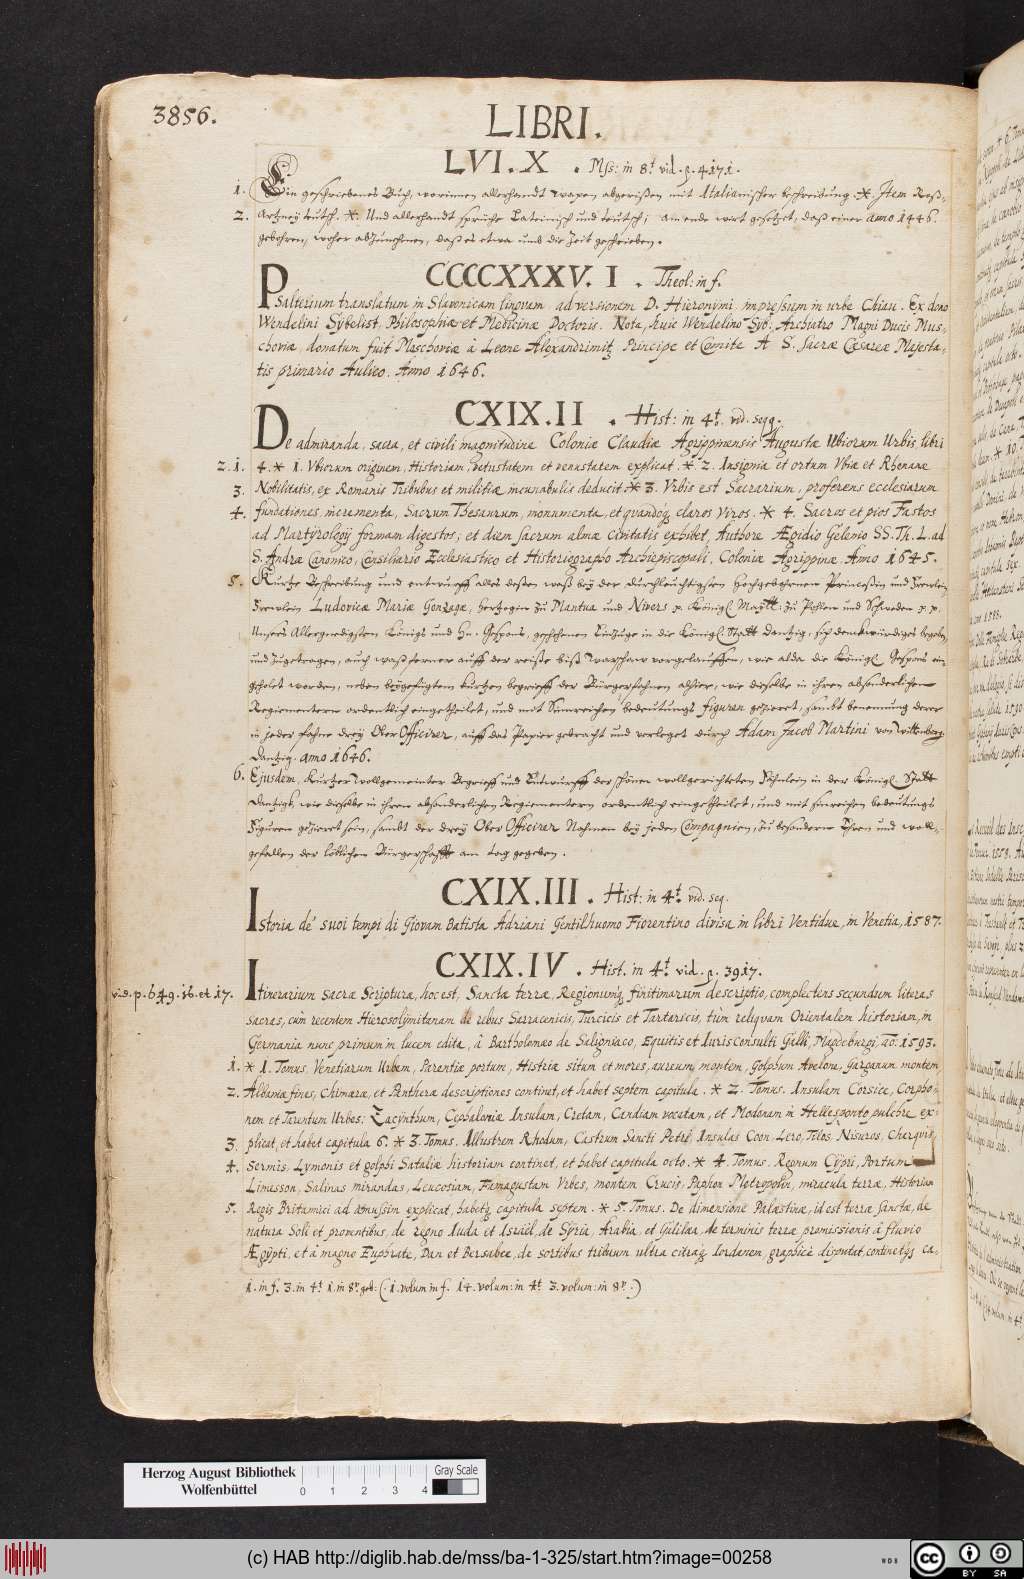 3856.
LIBRI.
LVI. X. Mss: in 8t. vid. p. 4171.
1. Ein geschriebenes Buch, worinnen allerhandt wapen abgerißen mit Italianischer beschreibung. * Item Roß-
2. Artzney teutsch. *. Und allerhandt sprüche Lateinisch und teutsch; am ende wirt gesetzet, daß einer anno 1446.
gebohren, woher abzunehmen, daß es etwa umb die Zeit geschrieben.
CCCCXXXV. I. Theol: in f.
Psalterium translatum in Slavonicam linguam ad versionem D. Hieronymi. impressum in urbe Chiau. Ex dono
Wendelini Sybelist, Philosophiæ et Medicinæ Doctoris. Nota, huic Wendelino Syb: Archiatro Magni Ducis Mus-
choviæ, donatum fuit Moschoviæ à Leone Alexandrimitz Principe et Comite A S. Sacræ Cæsareæ Majesta-
tis primario Aulico. Anno 1646.
CXIX. II. Hist: in 4t. vid. seqq.
De admiranda, sacra, et civili magnitudine Coloniæ Claudiæ Agrippinensis Augustæ Ubiorum Urbis libri
2. 1. 4. * 1. Vbiorum originem, Historiam, vetustatem et venustatem explicat. * 2. Insignia et ortum Vbiæ et Rhenanæ
3. Nobilitatis, ex Romanis Tribubus et militiæ incunabulis deducit. * 3. Vrbis est Sacrarium, proferens ecclesiarum
4. fundationes, incrementa, Sacrum Thesaurum, monumenta, et quandoq; claros Viros. * 4. Sacros et pios Fastos
ad Martyrologij formam digestos; et diem sacrum almæ civitatis exhibet, Authore Ægidio Gelenio SS. Th. L. ad
S. Andræ Canonico, Consiliario Ecclesiastico et Historiographo Archiepiscopali, Coloniæ Agrippinæ Anno 1645.
5. Kurtze Beschreibung und entwurff alles deßen waß bey der durchleuchtigsten Hochgebohrnen Princeßin und Frewlein
Frewlein Ludovicæ Mariæ Gonzagæ, Hertzogin zu Mantua und Nivers p. Königl. Maytt: zu Pohlen und Schweden p. p.
Unsers Allergnedigsten Königs und Hn. Gespons, geschehenen Einzuge in die Königl. Stadt Dantzig, sich denckwürdiges begeben
und zugetragen, auch waß ferner auff der reiße biß Warschaw vorgelauffen, wie alda die Königl. Gespons ein
geholet worden, neben beygefügtem kurtzen begrieff der Bürgerfahnen alhier, wie dieselbe in ihren absonderlichen
Regimentern ordentlich eingetheilet, und mit Sinnreichen bedeutungs figuren gezieret, sambt benennung derer
in jeder fahne drey Ober Officirer, auff das Papier gebracht und verleget durch Adam Jacob Martini von Wittenberg
Dantzig. anno 1646.
6. Ejusdem, Kurtzer wollgemeinter Begrieff und Entwurff der schönen wollgerichteten Fähnlein in der Königl. Stadt
Dantzigk, wie dieselbe in ihren absonderlichen Regimentern ordentlich eingetheilet, und mit sinreichen bedeutungs
Figuren gezieret sein, sambt der drey Ober Officirer Nahmen bey jeden Compagnien, zu besondern Ehren und woll-
gefallen der löblichen Bürgerschafft am tag gegeben.
CXIX. III. Hist: in 4t. vid. seq.
Istoria de' suoi tempi di Giovam Batista Adriani Gentilhuomo Fiorentino divisa in libri Ventidue, in Venetia, 1587.
CXIX. IV. Hist. in 4t. vid. p. 3917.
vid. p. 649. 16. et 17.
Itinerarium Sacræ Scripturæ, hoc est, Sanctæ terræ, Regionumq; finitimarum descriptio, complectens secundum literas
sacras, cùm recentem Hierosolymitanam de rebus Sarracenicis, Turcicis et Tartaricis, tùm reliqvam Orientalem historiam, in
Germania nunc primum in lucem edita, â Bartholomæo de Saligniaco, Equitis et Iuris Consulti Galli, Magdeburgi, ao: 1593.
1. * 1. Tomus. Venetiarum Urbem, Parentiæ portum, Histriæ situm et mores, aureum montem, Golphum Avelonæ, Garganum montem,
2. Albaniæ fines, Chimæræ, et Pantheræ descriptiones continet, et habet septem capitula. * 2. Tomus. Insulam Corsicæ, Corpho-
nem et Tarentum Urbes. Zacynthum, Cephaloniæ Insulam, Cretam, Candiam vocatam, et Modonam in Hellesponto pulchre ex-
3. plicat, et habet capitula 6. * 3. Tomus. Illustrem Rhodum, Castrum Sancti Petri, Insulas Coon, Lero, Tilos, Nisuros, Charquis,
4. Sermis, Lymonis et golphi Sataliæ historiam continet, et habet capitula octo. * 4. Tomus. Regnum Cypri, Portum
Limesson, Salinas mirandas, Leucosiam, Famagustam Vrbes, montem Crucis, Paphon Metropolin, miracula terræ, Historiam
5. Regis Britannici ad amussim explicat, habetq; capitula septem. * 5. Tomus. De dimensione Palæstinæ, id est terræ sanctæ, de
natura Soli et proventibus, de regno Iuda et Israël, de Syria, Arabia, et Galilæa, de terminis terræ promissionis â fluvio
Ægypti, et â magno Euphrate, Dan et Bersabee, de sortibus tribuum ultra citraq; Iordanem graphicè disputat, continetq; ca-
1. in f. 3. in 4t. 1. in 8v. geb: (. 1. volum in f. 14. volum: in 4t. 3. volum: in 8v.)
Herzog August Bibliothek
Wolfenbüttel
0 1 2 3 4
Gray Scale
(c) HAB http://diglib.hab.de/mss/ba-1-325/start.htm?image=00258
WDB
cc BY SA